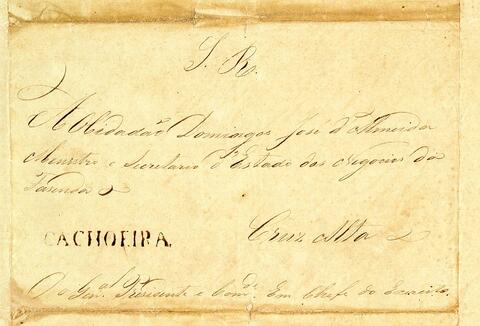 S. R.
Ao Cidadão Domingos José d'Almeida
Menistro e Secretario d'Estado dos Negocios da
Fazenda
CACHOEIRA.
Cruz Alta
Do Gen.al Presidente e Com.de Em Chefe do Exercito.